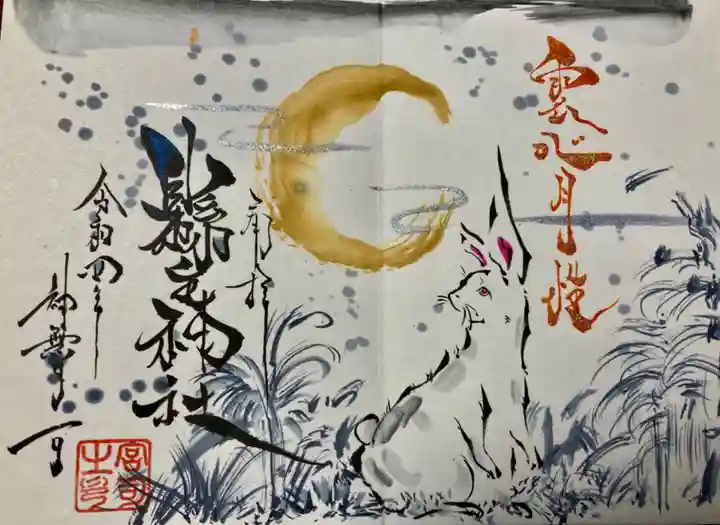 雲心月性
奉拝
神社
令和四年 神無月一日
宮司
之印